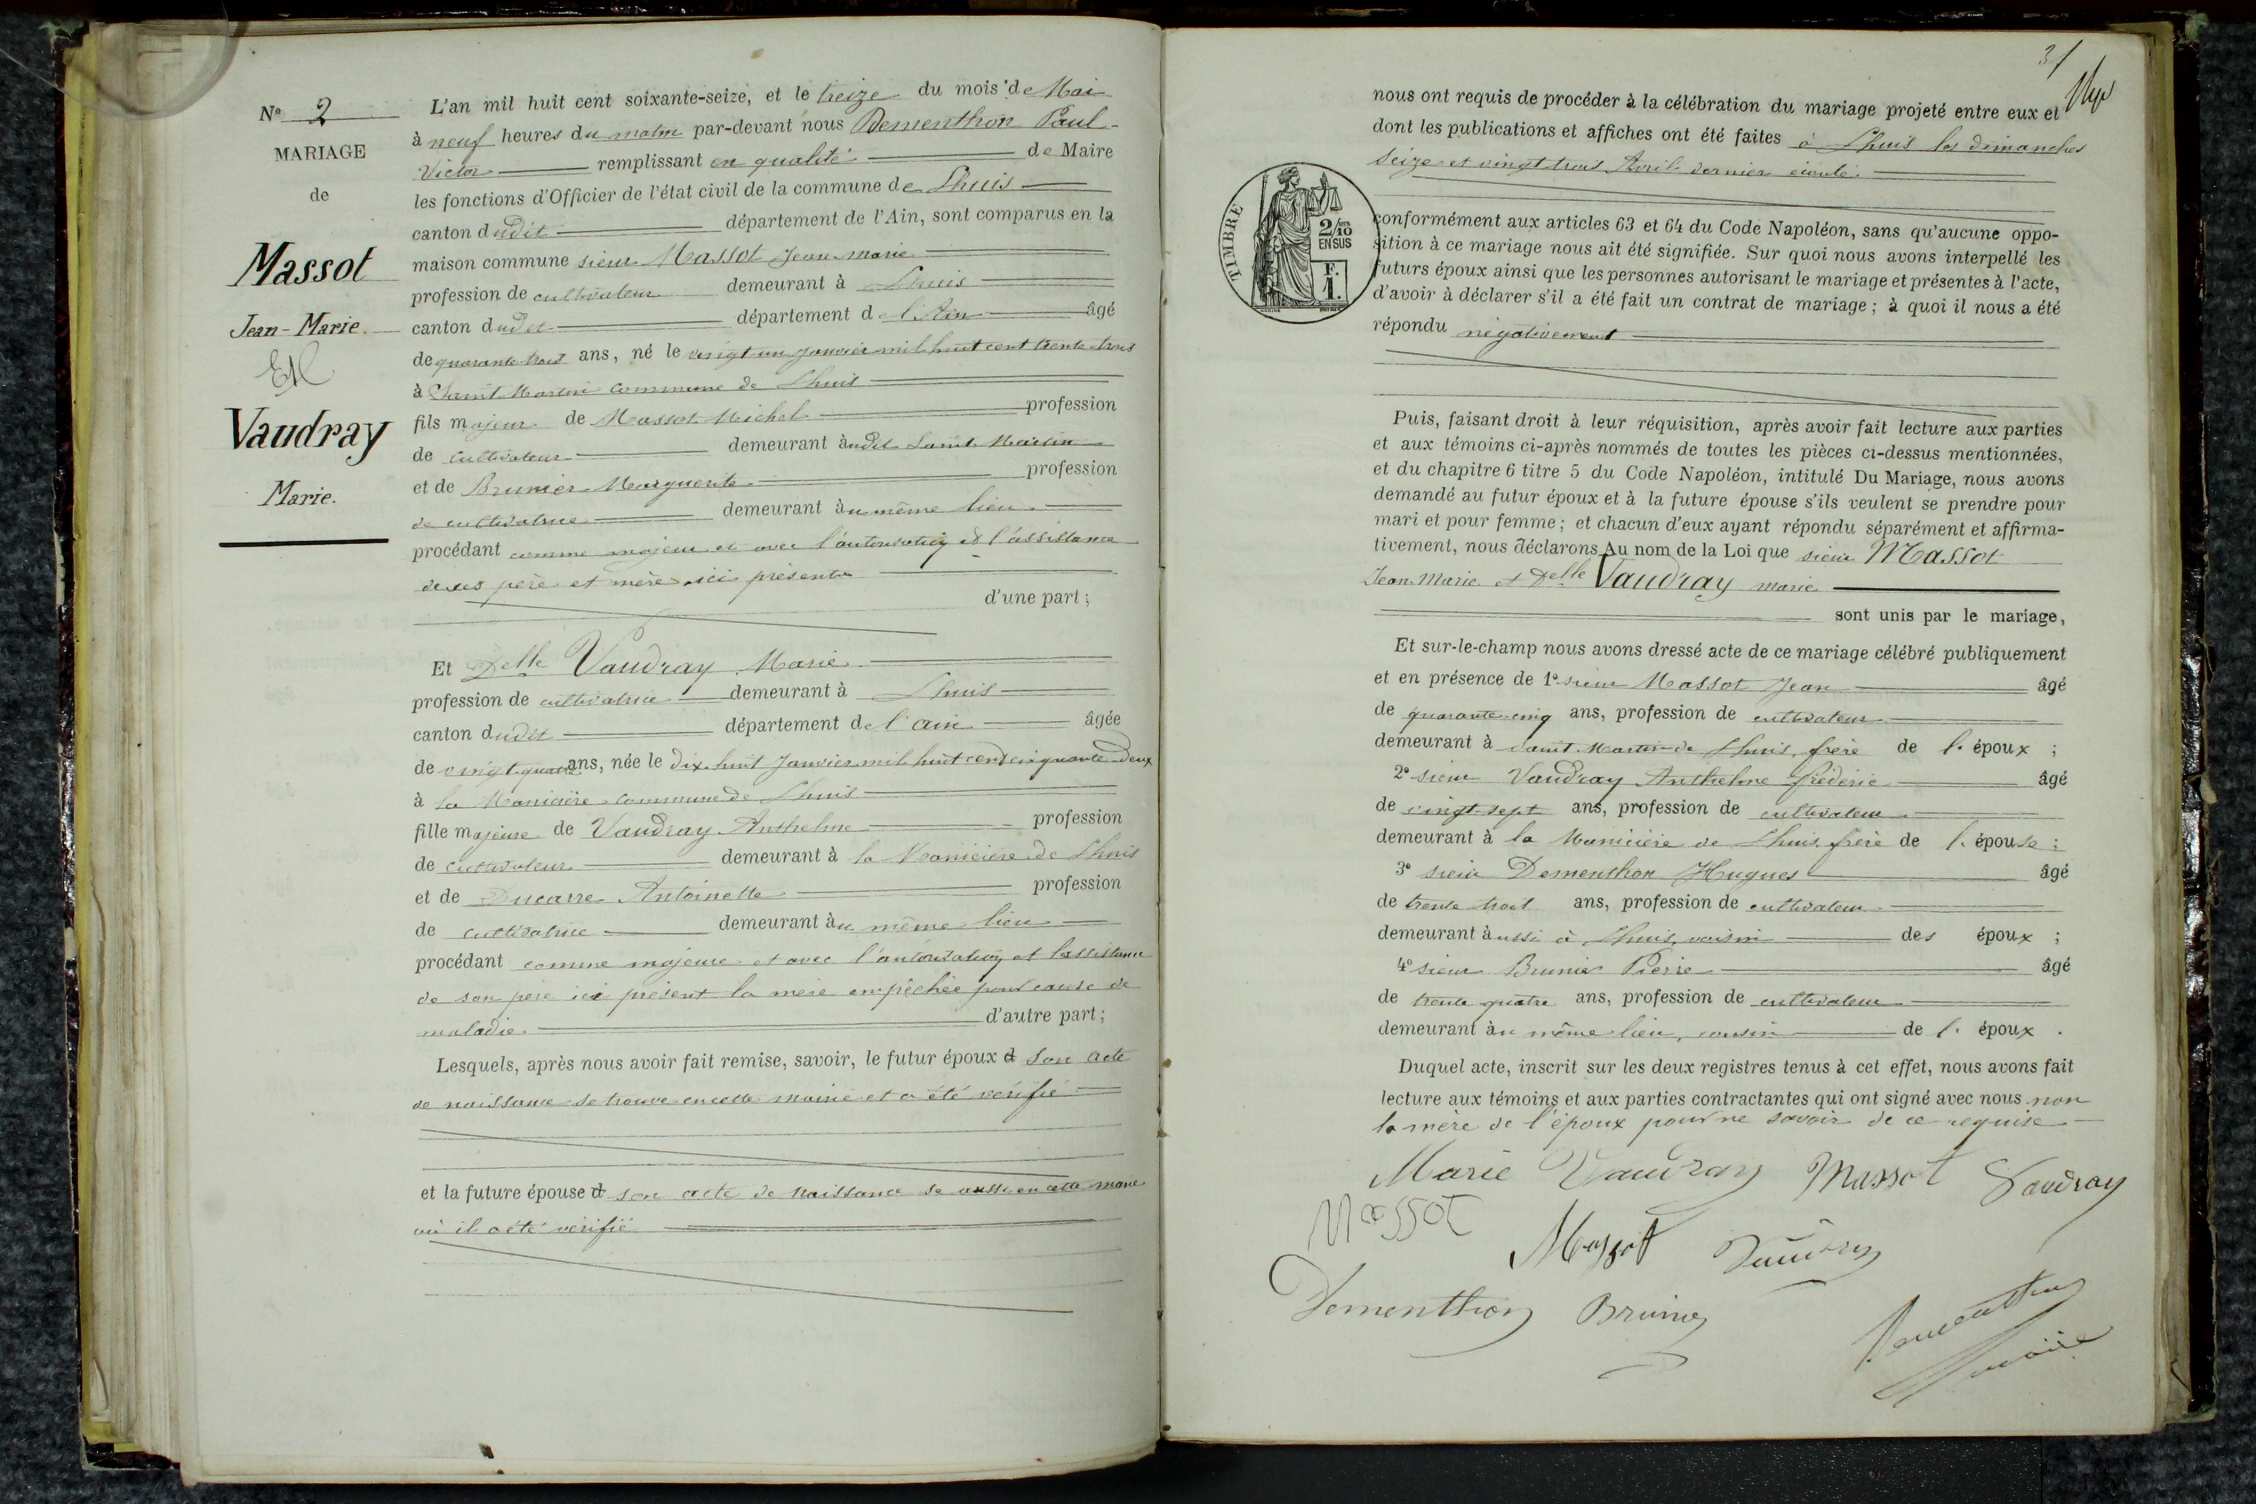 Nº 2
MARIAGE
de
Massot
Jean-Marie.
Et
Vaudray
Marie.
L'an mil huit cent soixante-seize, et le treize du mois de Mai
à neuf heures du matin par-devant nous Dementhon Paul-
Victor remplissant en qualité de Maire
les fonctions d'Officier de l'état civil de la commune de Lhuis
canton dudit département de l'Ain, sont comparus en la
maison commune sieur Massot Jean-Marie
profession de cultivateur demeurant à Lhuis
canton dudit département de l'Ain âgé
de quarante trois ans, né le vingt un janvier mil huit cent trente trois
à Saint Martin commune de Lhuis
fils majeur de Massot Michel profession
de cultivateur demeurant audit Saint Martin
et de Brunier Marguerite profession
de cultivatrice demeurant au même lieu
procédant comme majeur et avec l'autorisation et l'assistance
de ses père et mère ici présents
d'une part;
Et Delle Vaudray Marie
profession de cultivatrice demeurant à Lhuis
canton dudit département de l'ain âgée
de vingt quatre ans, née le dix-huit Janvier mil huit cent cinquante-deux
à la Manicière commune de Lhuis
fille majeure de Vaudray Anthelme profession
de cultivateur demeurant à la Manicière de Lhuis
et de Ducarre Antoinette profession
de cultivatrice demeurant au même lieu
procédant comme majeure et avec l'autorisation et l'assistance
de son père ici présent la mère empêchée pour cause de
maladie d'autre part;
Lesquels, après nous avoir fait remise, savoir, le futur époux d son acte
de naissance se trouve en cette mairie et a été vérifié
et la future épouse d son acte de naissance se aussi en cette mairie
où il a été vérifié
31
nous ont requis de procéder à la célébration du mariage projeté entre eux et
dont les publications et affiches ont été faites à Lhuis les dimanches
seize et vingt trois Avril dernier écoulé.
TIMBRE
2/10
EN SUS
F.
1.
conformément aux articles 63 et 64 du Code Napoléon, sans qu'aucune oppo-
sition à ce mariage nous ait été signifiée. Sur quoi nous avons interpellé les
futurs époux ainsi que les personnes autorisant le mariage et présentes à l'acte,
d'avoir à déclarer s'il a été fait un contrat de mariage; à quoi il nous a été
répondu négativement
Puis, faisant droit à leur réquisition, après avoir fait lecture aux parties
et aux témoins ci-après nommés de toutes les pièces ci-dessus mentionnées,
et du chapitre 6 titre 5 du Code Napoléon, intitulé Du Mariage, nous avons
demandé au futur époux et à la future épouse s'ils veulent se prendre pour
mari et pour femme; et chacun d'eux ayant répondu séparément et affirma-
tivement, nous déclarons Au nom de la Loi que sieur Massot
Jean-Marie et Delle Vaudray marie
sont unis par le mariage,
Et sur-le-champ nous avons dressé acte de ce mariage célébré publiquement
et en présence de 1º sieur Massot Jean âgé
de quarante-cinq ans, profession de cultivateur
demeurant à Saint Martin de Lhuis, frère de l'époux;
2º sieur Vaudray Anthelme frédéric âgé
de vingt-sept ans, profession de cultivateur
demeurant à la Manicière de Lhuis, frère de l'épouse;
3º sieur Dementhon Hugues âgé
de trente trois ans, profession de cultivateur
demeurant aussi à Lhuis, voisin des époux;
4º sieur Brunier Pierre âgé
de trente quatre ans, profession de cultivateur
demeurant au même lieu, cousin de l'époux.
Duquel acte, inscrit sur les deux registres tenus à cet effet, nous avons fait
lecture aux témoins et aux parties contractantes qui ont signé avec nous non
la mère de l'époux pour ne savoir de ce requise
Marie Vaudray Massot Vaudray
Massot
Massot Vaudray
Dementhon Brunier
Dementhon
maire